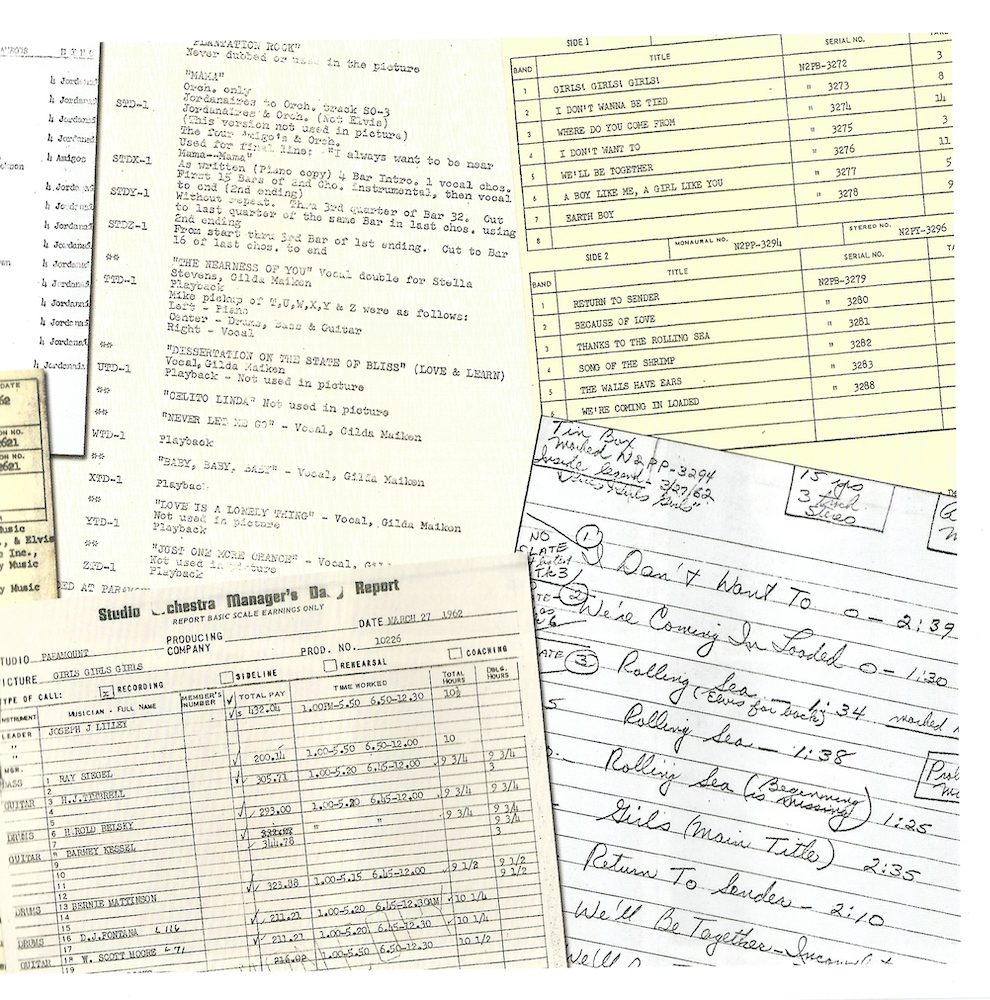 ¼ Jordanai
¼ Jordana
¼ Jordana
¼ Jordani
¼ Amigos
¼ Jorda
¼ Jordana
¼ Jorda
¼ Jordan
¼ Jordan
¼ Jordan
¼ Jordanai
¼ Jordana
¼ Jordana
¼ Jordannis
"PLANTATION ROCK"
Never dubbed or used in the picture
"MAMA"
Orch. only
STD-1 Jordanaires to Orch. track SO-3
Jordanaires & Orch. (Not Elvis)
(This version not used in picture)
The four Amigo's & Orch.
Used for final line: "I always want to be near
Mama--Mama"
STDX-1 As written (Piano copy) 4 Bar Intro. 1 vocal chos.
First 15 Bars of 2nd Cho. instrumental, then vocal
to end (2nd ending)
STDY-1 Without repeat. Thru 3rd quarter of Bar 32. Cut
to last quarter of the same Bar in last chos. using
2nd ending
STDZ-1 From start thru 3rd Bar of 1st ending. Cut to Bar
16 of last chos. to end
** "THE NEARNESS OF YOU" Vocal double for Stella
Stevens, Gilda Maiken
TTD-1 Playback
Mike pickup of T,U,W,X,Y & Z were as follows:
Left - Piano
Center - Drums, Bass & Guitar
Right - Vocal
** "DISSERTATION ON THE STATE OF BLISS" (LOVE & LEARN)
UTD-1 Vocal, Gilda Maiken
Playback - Not used in picture
** "CELITO LINDA" Not used in picture
** "NEVER LET ME GO" - Vocal, Gilda Maiken
WTD-1 Playback
** "BABY, BABY, BABY" - Vocal, Gilda Maiken
XTD-1 Playback
** "LOVE IS A LONELY THING" - Vocal, Gilda Maiken
Not used in picture
YTD-1 Playback
** "JUST ONE MORE CHANCE" - Vocal,
Not used in picture
ZTD-1 Playback
DED AT PARAMOU
SIDE 1
BAND TITLE SERIAL NO. TAKE
1 GIRLS! GIRLS! GIRLS! N2PB-3272 3
2 I DON'T WANNA BE TIED " 3273 8
3 WHERE DO YOU COME FROM " 3274 14
4 I DON'T WANT TO " 3275 3
5 WE'LL BE TOGETHER " 3276 11
6 A BOY LIKE ME, A GIRL LIKE YOU " 3277 5
7 EARTH BOY " 3278 9
8
SIDE 2 MONAURAL NO. N2PP-3294 STEREO NO. N2PY-3296
BAND TITLE SERIAL NO. TA
1 RETURN TO SENDER N2PB-3279
2 BECAUSE OF LOVE " 3280
3 THANKS TO THE ROLLING SEA " 3281
4 SONG OF THE SHRIMP " 3282
5 THE WALLS HAVE EARS " 3283
6 WE'RE COMING IN LOADED " 3288
DATE
62
ON NO.
2621
ON NO.
2621
Music
, & Elvis
Inc.,
y Music
y Music
Tin Box
marked N2PP-3294
Inside legend - 3/27/62
"Girls Girls Girls"
15 ips
3 track
Stereo
NO
SLATE
TK 3
1 I Don't Want To 0 - 2:39
2 We're Coming In Loaded 0 - 1:30
3 Rolling Sea - 1:34 marked
(Elvis far back)
Rolling Sea - 1:38
Rolling Sea (Beginning is missing) 1:25
Girls (Main Title) 2:35
Return To Sender - 2:10
We'll Be Together -
We'll
Studio Orchestra Manager's Da y Report
REPORT BASIC SCALE EARNINGS ONLY
DATE MARCH 27 1962
TUDIO PARAMOUNT PRODUCING COMPANY PROD. NO. 10226
ICTURE GIRLS GIRLS GIRLS
TYPE OF CALL: x RECORDING SIDELINE REHEARSAL COACHING
INSTRUMENT MUSICIAN - FULL NAME MEMBER'S NUMBER TOTAL PAY TIME WORKED TOTAL HOURS DBLG. HOURS
LEADER JOSEPH J LILLEY $ 432.04 1.00PM-5.50 6.50-12.30 10½
"
" 200.14 1.00-5.50 6.50-12.00 10
MGR.
BASS 1 RAY SIEGEL 305.71 1.00-5.20 6.45-12.00 9 3/4 9 3/4
2 3
GUITAR 3 H.J.TIMBRELL 293.00 1.00-5.20 6.45-12.00 9 3/4 9 3/4
4
5
DRUMS 6 HAROLD BELSKY " " 9 3/4 9 3/4
7 344.78 3
GUITAR 8 BARNEY KESSEL
9
10
11 323.38 1.00-5.15 6.45-12.00 9 1/2 9 1/2
12 9 1/2
DRUMS 13 BERNIE MATTINSON 211.21 1.00-5.20 6.45-12.30AM 10 1/4
14
15
DRUMS 16 D.J.FONTANA L 116 211.21 1.00-5.20 6.45-12.30 10 1/4
17
GUITAR 18 W. SCOTT MOORE L 71 216.82 1.00-5.30 6.50-12.30 10 1/2
19